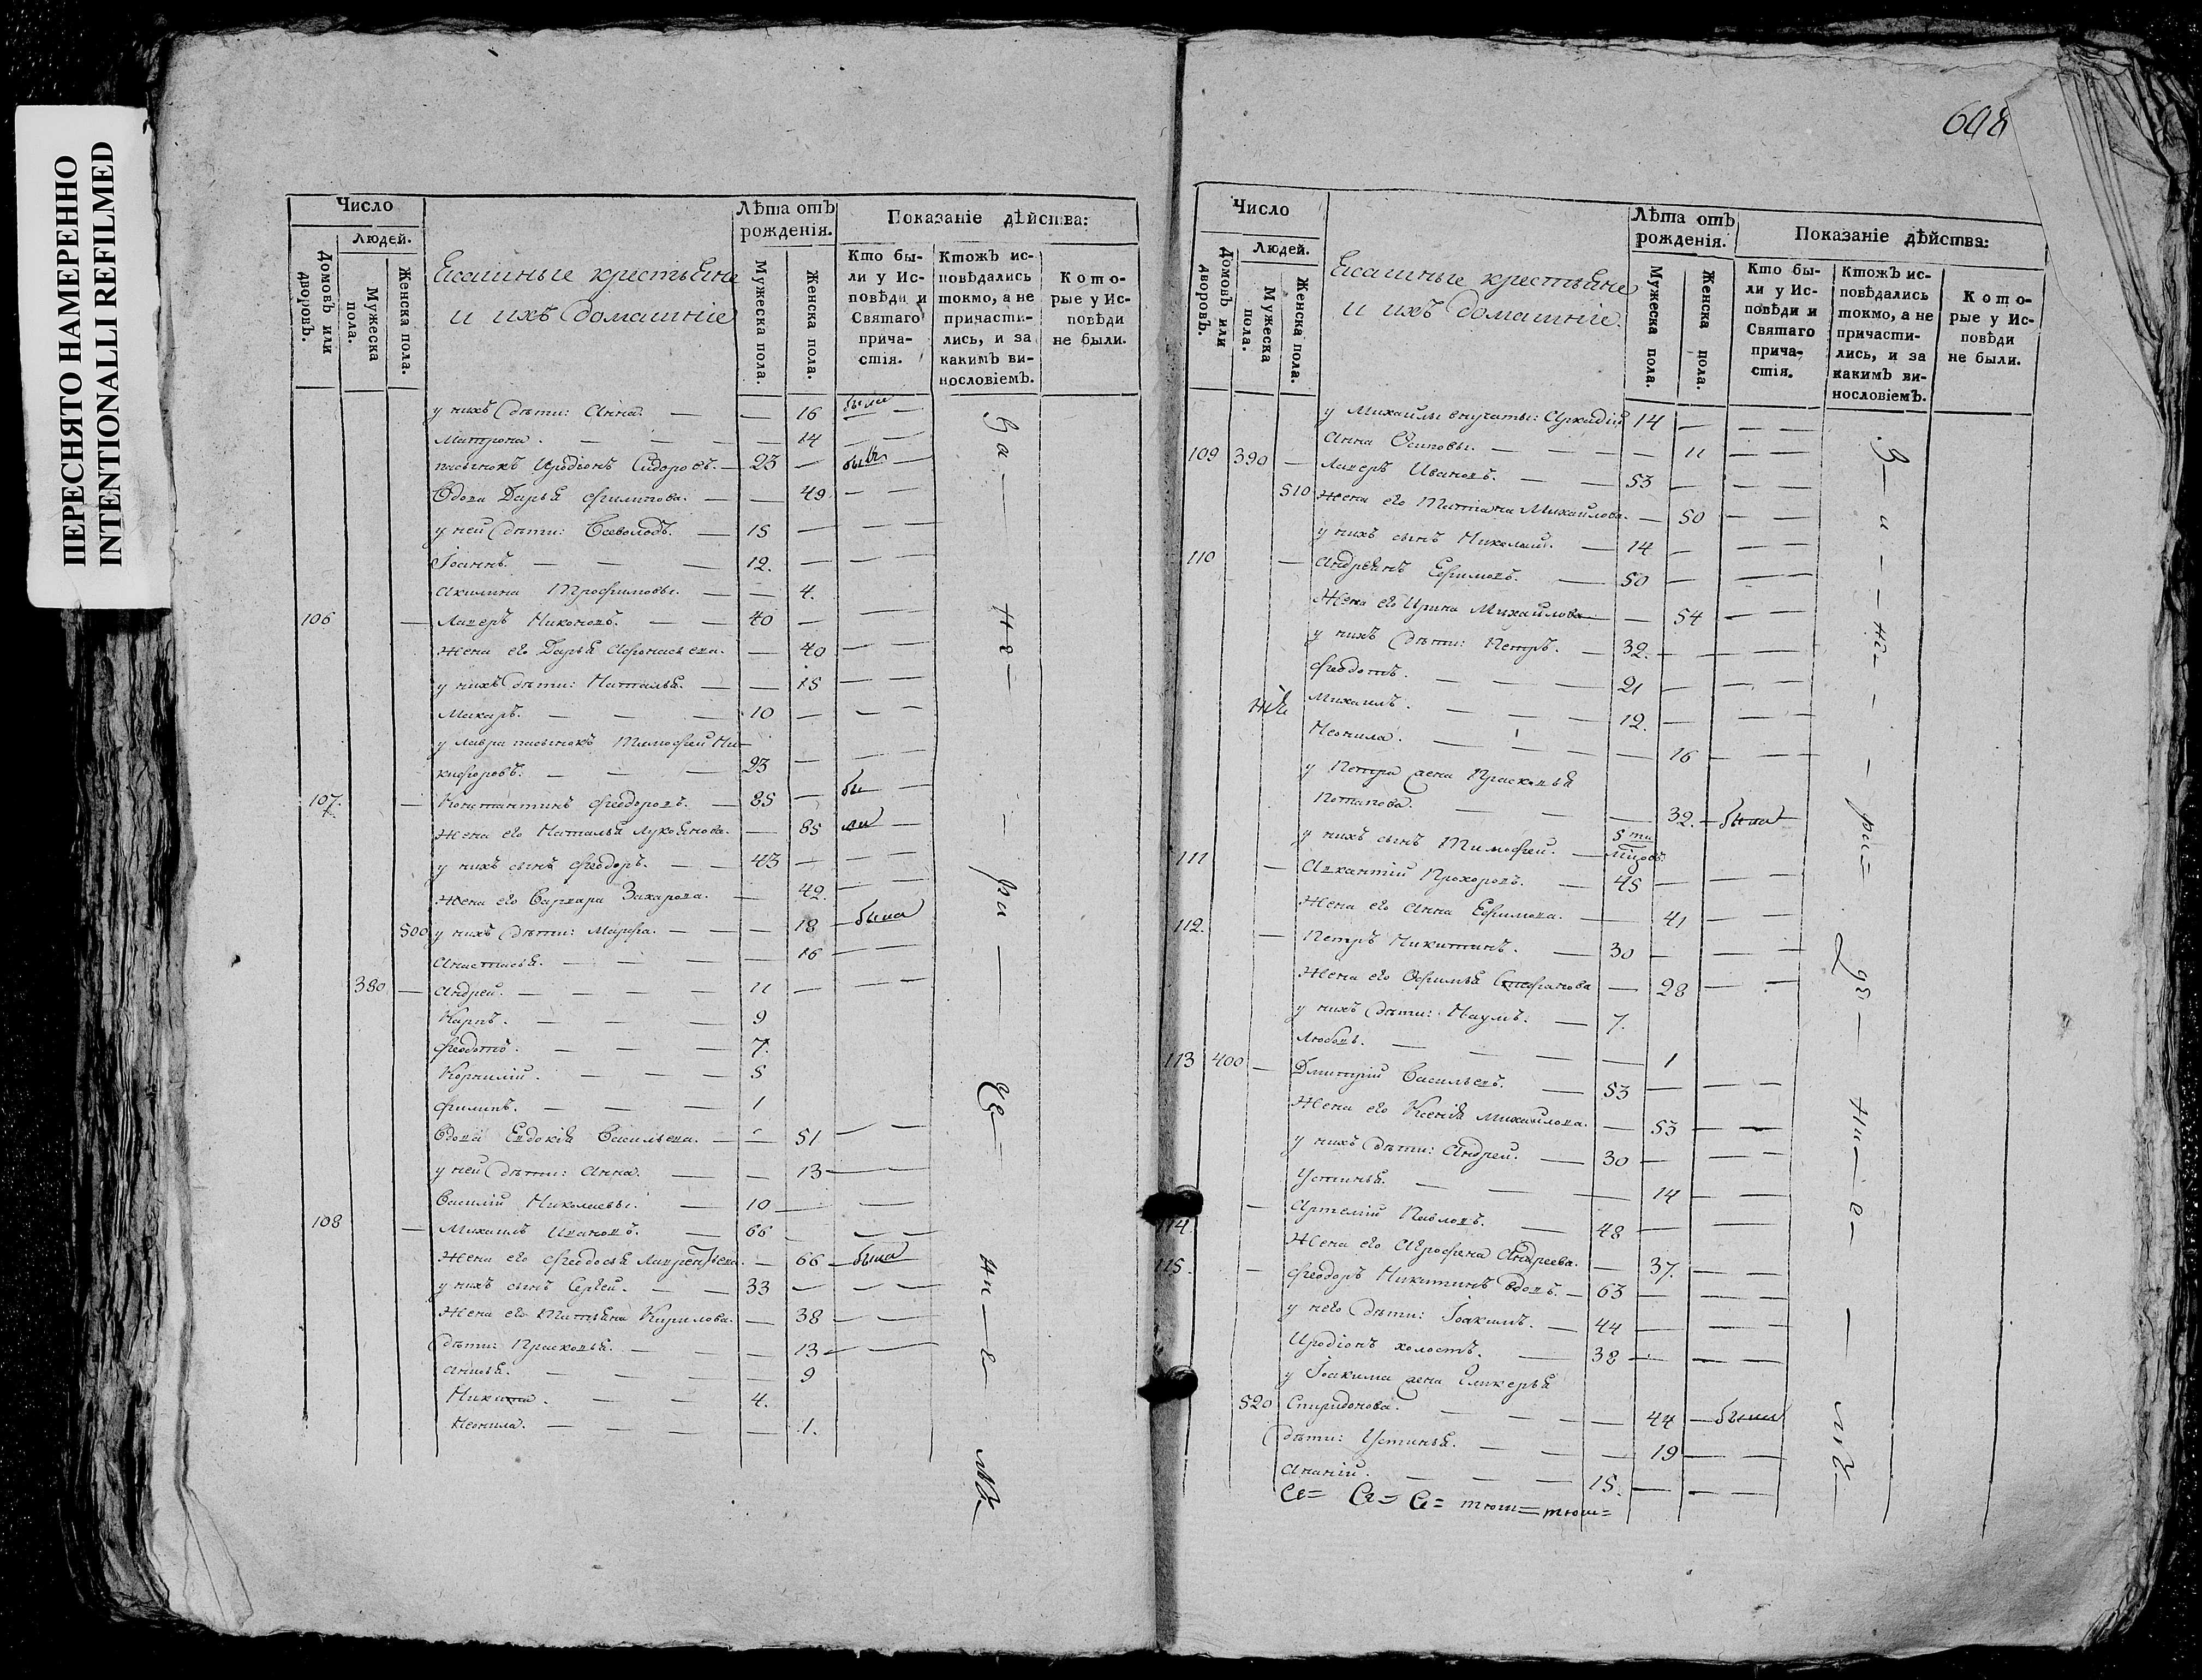 ПЕРЕСНЯТО НАМЕРЕННО
INTENTIONALLI REFILMED
Число
Людей.
Домовъ или дворовъ.
Мужеска пола.
Женска пола.
Ясашные крестьяне
и ихъ домашніе
Лѣта отъ рожденія.
Мужеска пола.
Женска пола.
Показаніе дѣйства:
Кто бы-
ли у Ис-
повѣди и
Святаго
прича-
стія.
Ктожъ ис-
повѣдались
токмо, а не
причасти-
лись, и за
какимъ ви-
нословіемъ.
Кото-
рые у Ис-
повѣди
не были.
у нихъ дѣти: Анна. — — 16 была
Матрона. — — — — 14 — —
пасынокъ Иродіонъ Сидоровъ. — 23 — былъ —
Вдова Дарья Филипова. — — 49 — —
у ней дѣти: Всеволодъ. — 15 — — —
Іоаннъ. — — — 12. — — —
Акилина Трофимовы. — — 4.
106 — Лавръ Никоновъ. — — 40 — — —
Жена его Дарья Афонасьева. — 40 — —
у нихъ дѣти: Наталья. — — 15 — —
Макаръ. — — — 10 — — —
у Лавра пасынокъ Тимофей Ни-
кифоровъ. — — — 23 — — —
107. — Константинъ Феодоровъ. — 85 — бы —
Жена его Наталья Лукоянова. — 85 ли —
у нихъ сынъ Феодоръ. — — 43 — — —
Жена его Варвара Захарова. — 42. — —
500 у нихъ дѣти: Марфа. — — — 18 — была
Анастасья. — — — — 16 — —
380 — Андрей. — — — — 11 — — —
Карпъ. — — — — 9
Феодотъ. — — — 7.
Корнилій. — — — 5
Филипъ. — — — 1
Вдова Евдокія Васильева. — — 51 — —
у ней дѣти: Анна. — — 13 — —
Василій Николаевы. — 10 — — —
108 — Михаилъ Ивановъ. — 66 — — —
Жена его Феодосья Лаврентьева. — 66 — была
у нихъ сынъ Сергей. — — 33 — — —
Жена его Татьяна Кирилова. — 38 — —
дѣти: Прасковья. — — — 13 — —
Анисья. — — — — 9
Никита. — — — 4.
Неонила. — — — — 1.
За — не — ра — че — ни — е — мъ
608
Число
Людей.
Домовъ или дворовъ.
Мужеска пола.
Женска пола.
Ясашные крестьяне
и ихъ домашніе.
Лѣта отъ рожденія.
Мужеска пола.
Женска пола.
Показаніе дѣйства:
Кто бы-
ли у Ис-
повѣди и
Святаго
прича-
стія.
Ктожъ ис-
повѣдались
токмо, а не
причасти-
лись, и за
какимъ ви-
нословіемъ.
Кото-
рые у Ис-
повѣди
не были.
у Михаилы внучаты: Аркадій 14 — — —
Анна Осиповы. — — — — 11 — —
109 390 — Лавръ Ивановъ. — — 53 — — —
510 Жена его Татіана Михайлова. — 50 — —
у нихъ сынъ Николай. — 14 — — —
110 — Андреянъ Ефимовъ. — 50 — — —
Жена его Ирина Михайлова — 54 — —
у нихъ дѣти: Петръ. — 32. — — —
Феодотъ. — — — 21 — — —
Михаилъ. — — — 12. — — —
Неонила. — — — — 16 — —
у Петра жена Прасковья
Потапова. — — — 32. — была
у нихъ сынъ Тимофей. — 5ти мцовъ.
111 — Авкентій Прохоровъ. — 45 — — —
Жена его Анна Ефимова. — — 41 — —
112. — Петръ Никитинъ. — 30 — — —
Жена его Офимья Стефанова — 28 — —
у нихъ дѣти: Наумъ. — 7.
Любовь. — — — 1
113 400 — Дмитрій Васильевъ. — 53 — — —
Жена его Ксенія Михайлова. — 53 — —
у нихъ дѣти: Андрей. — 30 — — —
Устинья. — — — — 14 — —
114. — Артемій Павловъ. — 48 — — —
Жена его Агрофена Андреева. — 37. — —
115. — Феодоръ Никитинъ вдовъ. — 63 — — —
у него дѣти: Іоакимъ. — 44 — — —
Иродіонъ холостъ. — 38 — — —
у Іоакима жена Гликерья
520 Спиридонова. — — — 44 — была
дѣти: Устинья. — — — 19 — —
Ананій. — — — 15. — — —